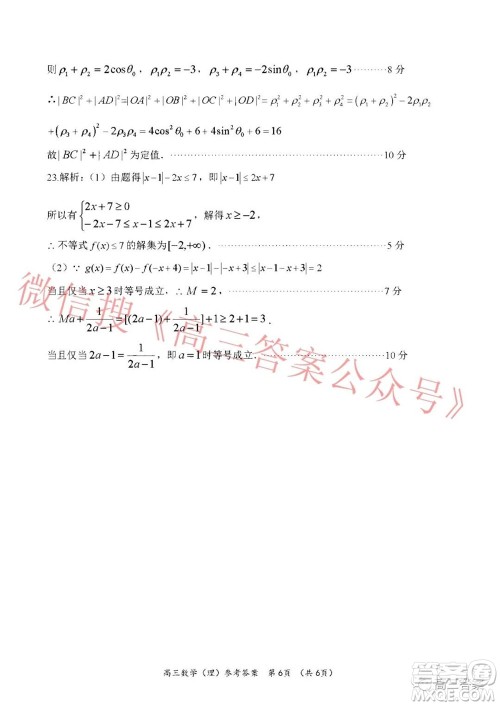 则 ρ₁ + ρ₂ = 2cosθ₀ ，ρ₁ρ₂ = −3，ρ₃ + ρ₄ = −2sinθ₀ ，ρ₃ρ₄ = −3 ············8 分
∴ |BC|² + |AD|² = |OA|² + |OB|² + |OC|² + |OD|² = ρ₁² + ρ₂² + ρ₃² + ρ₄² = (ρ₁ + ρ₂)² − 2ρ₁ρ₂
+ (ρ₃ + ρ₄)² − 2ρ₃ρ₄ = 4cos²θ₀ + 6 + 4sin²θ₀ + 6 = 16
故 |BC|² + |AD|² 为定值．············10 分
23.解析：（1）由题得|x−1|−2x ≤ 7，即|x−1| ≤ 2x+7
所以有{2x+7 ≥ 0
−2x−7 ≤ x−1 ≤ 2x+7，解得 x ≥ −2，
∴ 不等式 f(x) ≤ 7 的解集为[−2,+∞)．············5 分
（2）∵ g(x) = f(x) − f(−x+4) = |x−1| − |x−3| ≤ |x−1−x+3| = 2
当且仅当 x ≥ 3 时等号成立，∴ M = 2，············7 分
∴ Ma + 1/(2a−1) = [(2a−1) + 1/(2a−1)] + 1 ≥ 2 + 1 = 3 ．
当且仅当 2a−1 = 1/(2a−1)，即 a = 1 时等号成立．············10 分
微信搜《高三答案公众号》
高三数学（理）参考答案 第 6 页 （共 6 页）
高三答案